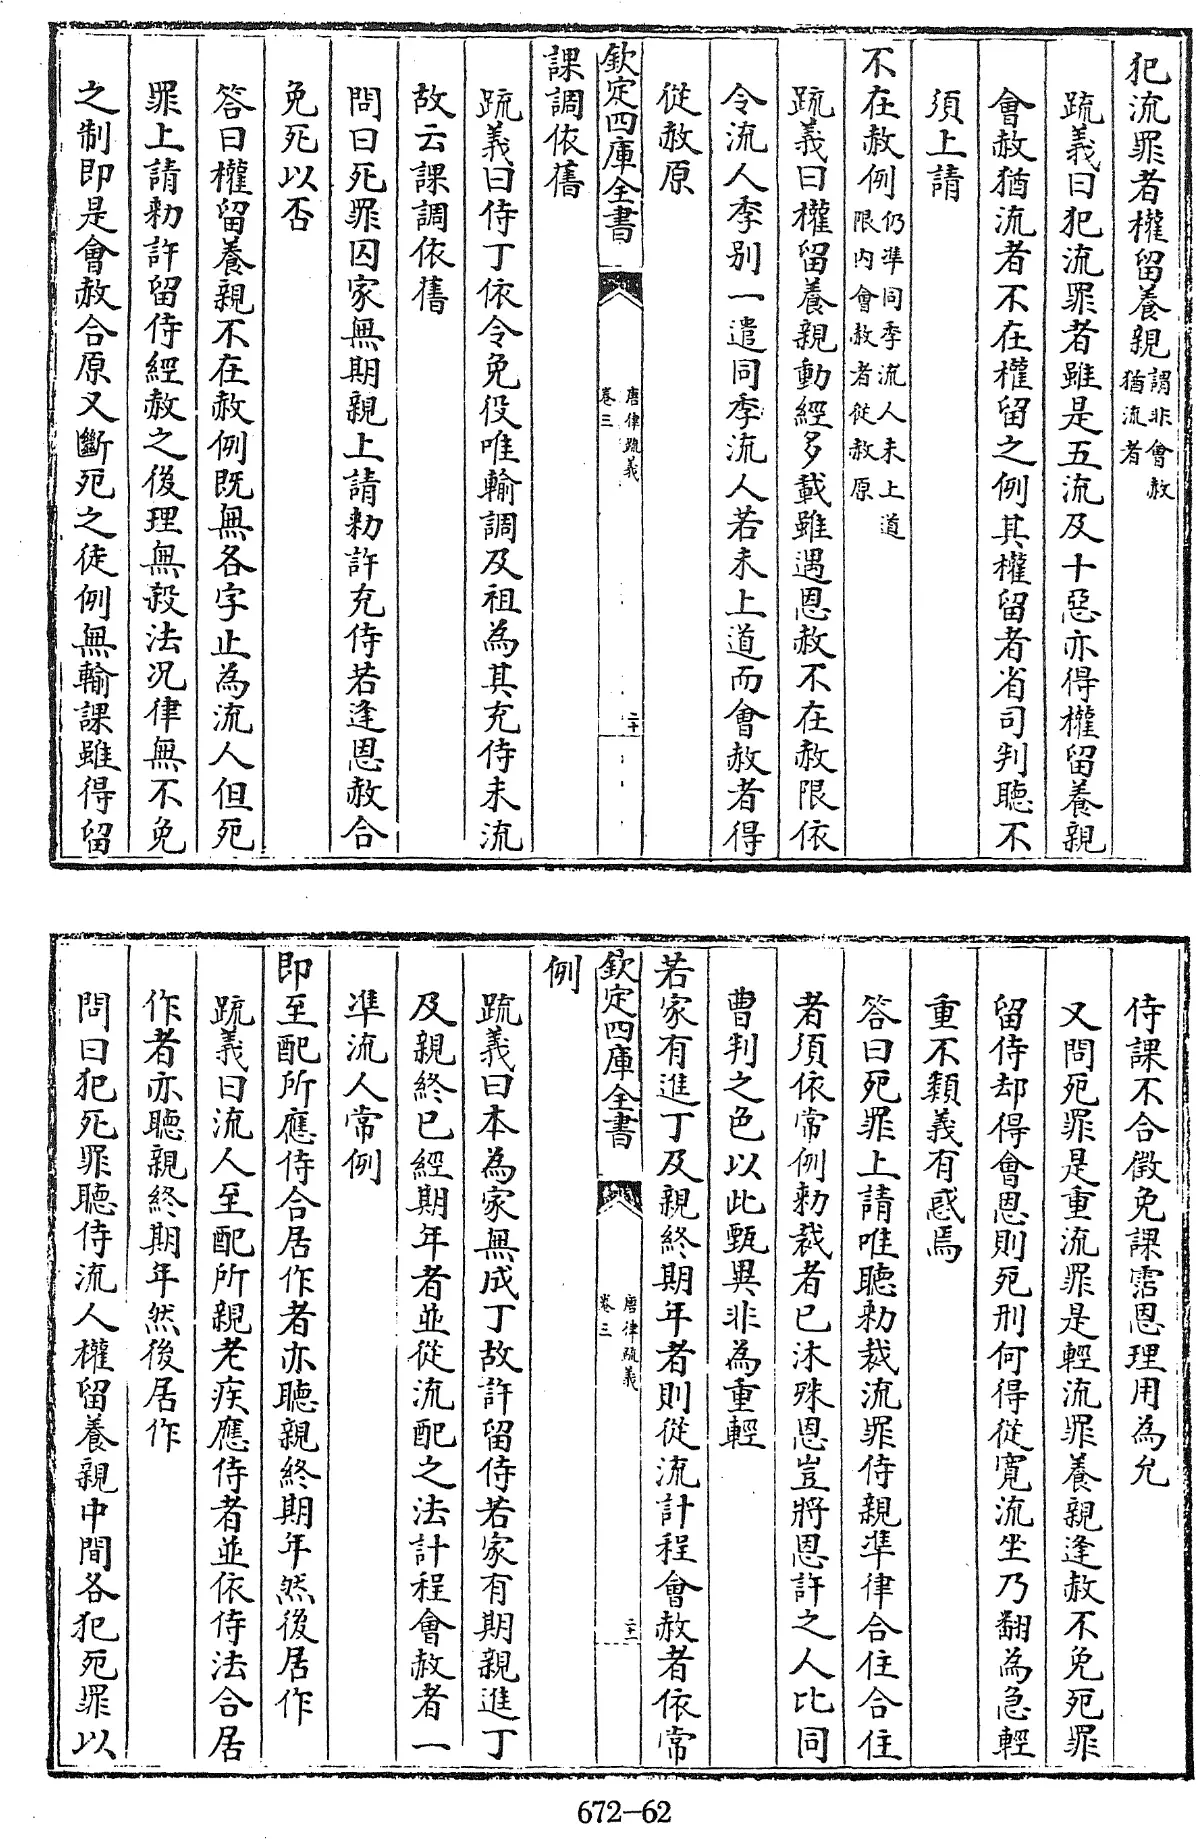 犯流罪者權留養親謂非會赦猶流者
疏義曰犯流罪者雖是五流及十惡亦得權留養親
會赦猶流者不在權留之例其權留者省司判聽不
須上請
不在赦例仍準同季流人未上道限內會赦者從赦原
疏義曰權留養親動經多載雖遇恩赦不在赦限依
令流人季别一遣同季流人若未上道而會赦者得
從赦原
欽定四庫全書 唐律疏義 卷三 二十
課調依舊
疏義曰侍丁依令免役唯輸調及租為其充侍未流
故云課調依舊
問曰死罪囚家無期親上請勑許充侍若逢恩赦合
免死以否
答曰權留養親不在赦例既無各字止為流人但死
罪上請勑許留侍經赦之後理無殺法况律無不免
之制即是會赦合原又斷死之徒例無輸課雖得留
侍課不合徵免課霑恩理用為允
又問死罪是重流罪是輕流罪養親逢赦不免死罪
留侍却得會恩則死刑何得從寛流坐乃翻為急輕
重不類義有惑焉
答曰死罪上請唯聽勑裁流罪侍親準律合住合住
者須依常例勑裁者已沐殊恩豈將恩許之人比同
曹判之色以此甄異非為重輕
若家有進丁及親終期年者則從流計程會赦者依常
欽定四庫全書 唐律疏義 卷三 二十一
例
疏義曰本為家無成丁故許留侍若家有期親進丁
及親終已經期年者並從流配之法計程會赦者一
準流人常例
即至配所應侍合居作者亦聽親終期年然後居作
疏義曰流人至配所親老疾應侍者並依侍法合居
作者亦聽親終期年然後居作
問曰犯死罪聽侍流人權留養親中間各犯死罪以
672-62